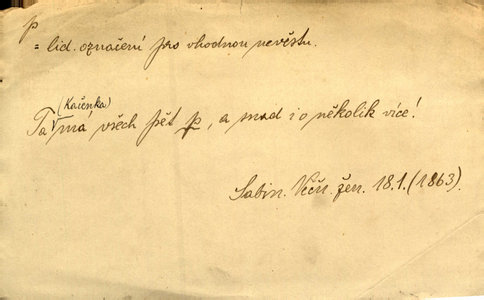 p
= lid. označení pro vhodnou nevěstu.
(Kačenka)
Ta má všech pět p, a snad i o několik více!
Sabin. Věčn. žen. 18.1.(1863).